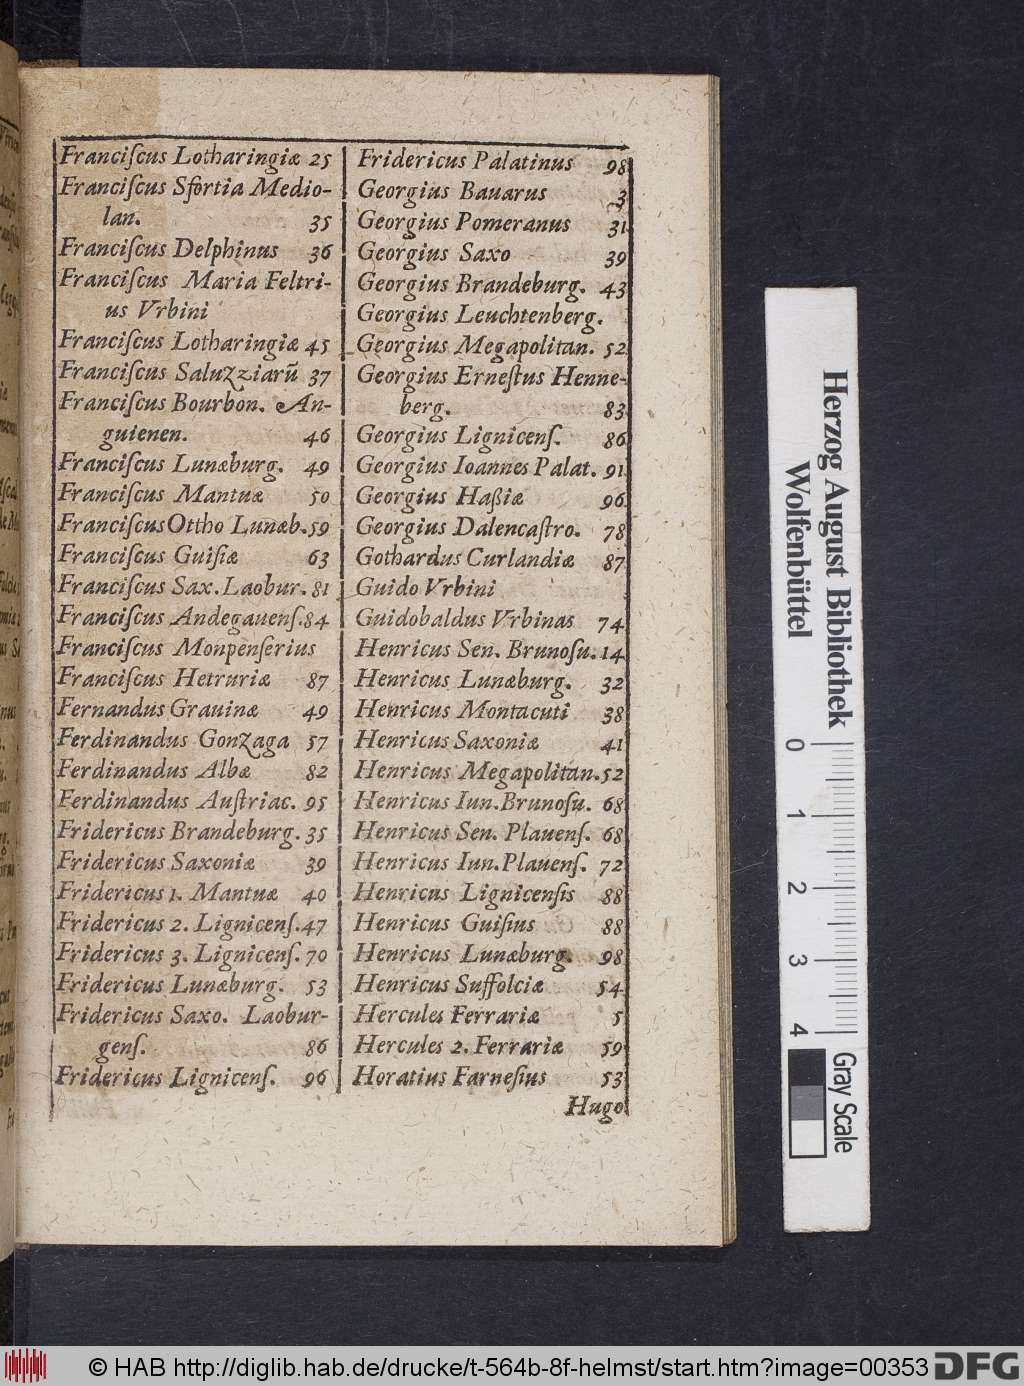 Franciſcus Lotharingiæ 25
Franciſcus Sfortia Medio-
lan. 35
Franciſcus Delphinus 36
Franciſcus Maria Feltri-
us Vrbini
Franciſcus Lotharingiæ 45
Franciſcus Saluzziarū 37
Franciſcus Bourbon. An-
guienen. 46
Franciſcus Lunæburg. 49
Franciſcus Mantuæ 50
Franciſcus Ottho Lunæb. 59
Franciſcus Guiſiæ 63
Franciſcus Sax. Laobur. 81
Franciſcus Andegauenſ. 84
Franciſcus Monpenſerius
Franciſcus Hetruriæ 87
Fernandus Grauinæ 49
Ferdinandus Gonzaga 57
Ferdinandus Albæ 82
Ferdinandus Auſtriac. 95
Fridericus Brandeburg. 35
Fridericus Saxoniæ 39
Fridericus 1. Mantuæ 40
Fridericus 2. Lignicenſ. 47
Fridericus 3. Lignicenſ. 70
Fridericus Lunæburg. 53
Fridericus Saxo. Laobur-
genſ. 86
Fridericus Lignicenſ. 96
Fridericus Palatinus 98
Georgius Bauarus 3
Georgius Pomeranus 31
Georgius Saxo 39
Georgius Brandeburg. 43
Georgius Leuchtenberg.
Georgius Megapolitan. 52
Georgius Erneſtus Henne-
berg. 83
Georgius Lignicenſ. 86
Georgius Ioannes Palat. 91
Georgius Haßiæ 96
Georgius Dalencaſtro. 78
Gothardus Curlandiæ 87
Guido Vrbini
Guidobaldus Vrbinas 74
Henricus Sen. Brunoſu. 14
Henricus Lunæburg. 32
Henricus Montacuti 38
Henricus Saxoniæ 41
Henricus Megapolitan. 52
Henricus Iun. Brunoſu. 68
Henricus Sen. Plauenſ. 68
Henricus Iun. Plauenſ. 72
Henricus Lignicenſis 88
Henricus Guiſius 88
Henricus Lunæburg. 98
Henricus Suffolciæ 54
Hercules Ferrariæ 5
Hercules 2. Ferrariæ 59
Horatius Farneſius 53
Hugo
Herzog August Bibliothek
Wolfenbüttel
0 1 2 3 4
Gray Scale
© HAB http://diglib.hab.de/drucke/t-564b-8f-helmst/start.htm?image=00353
DFG